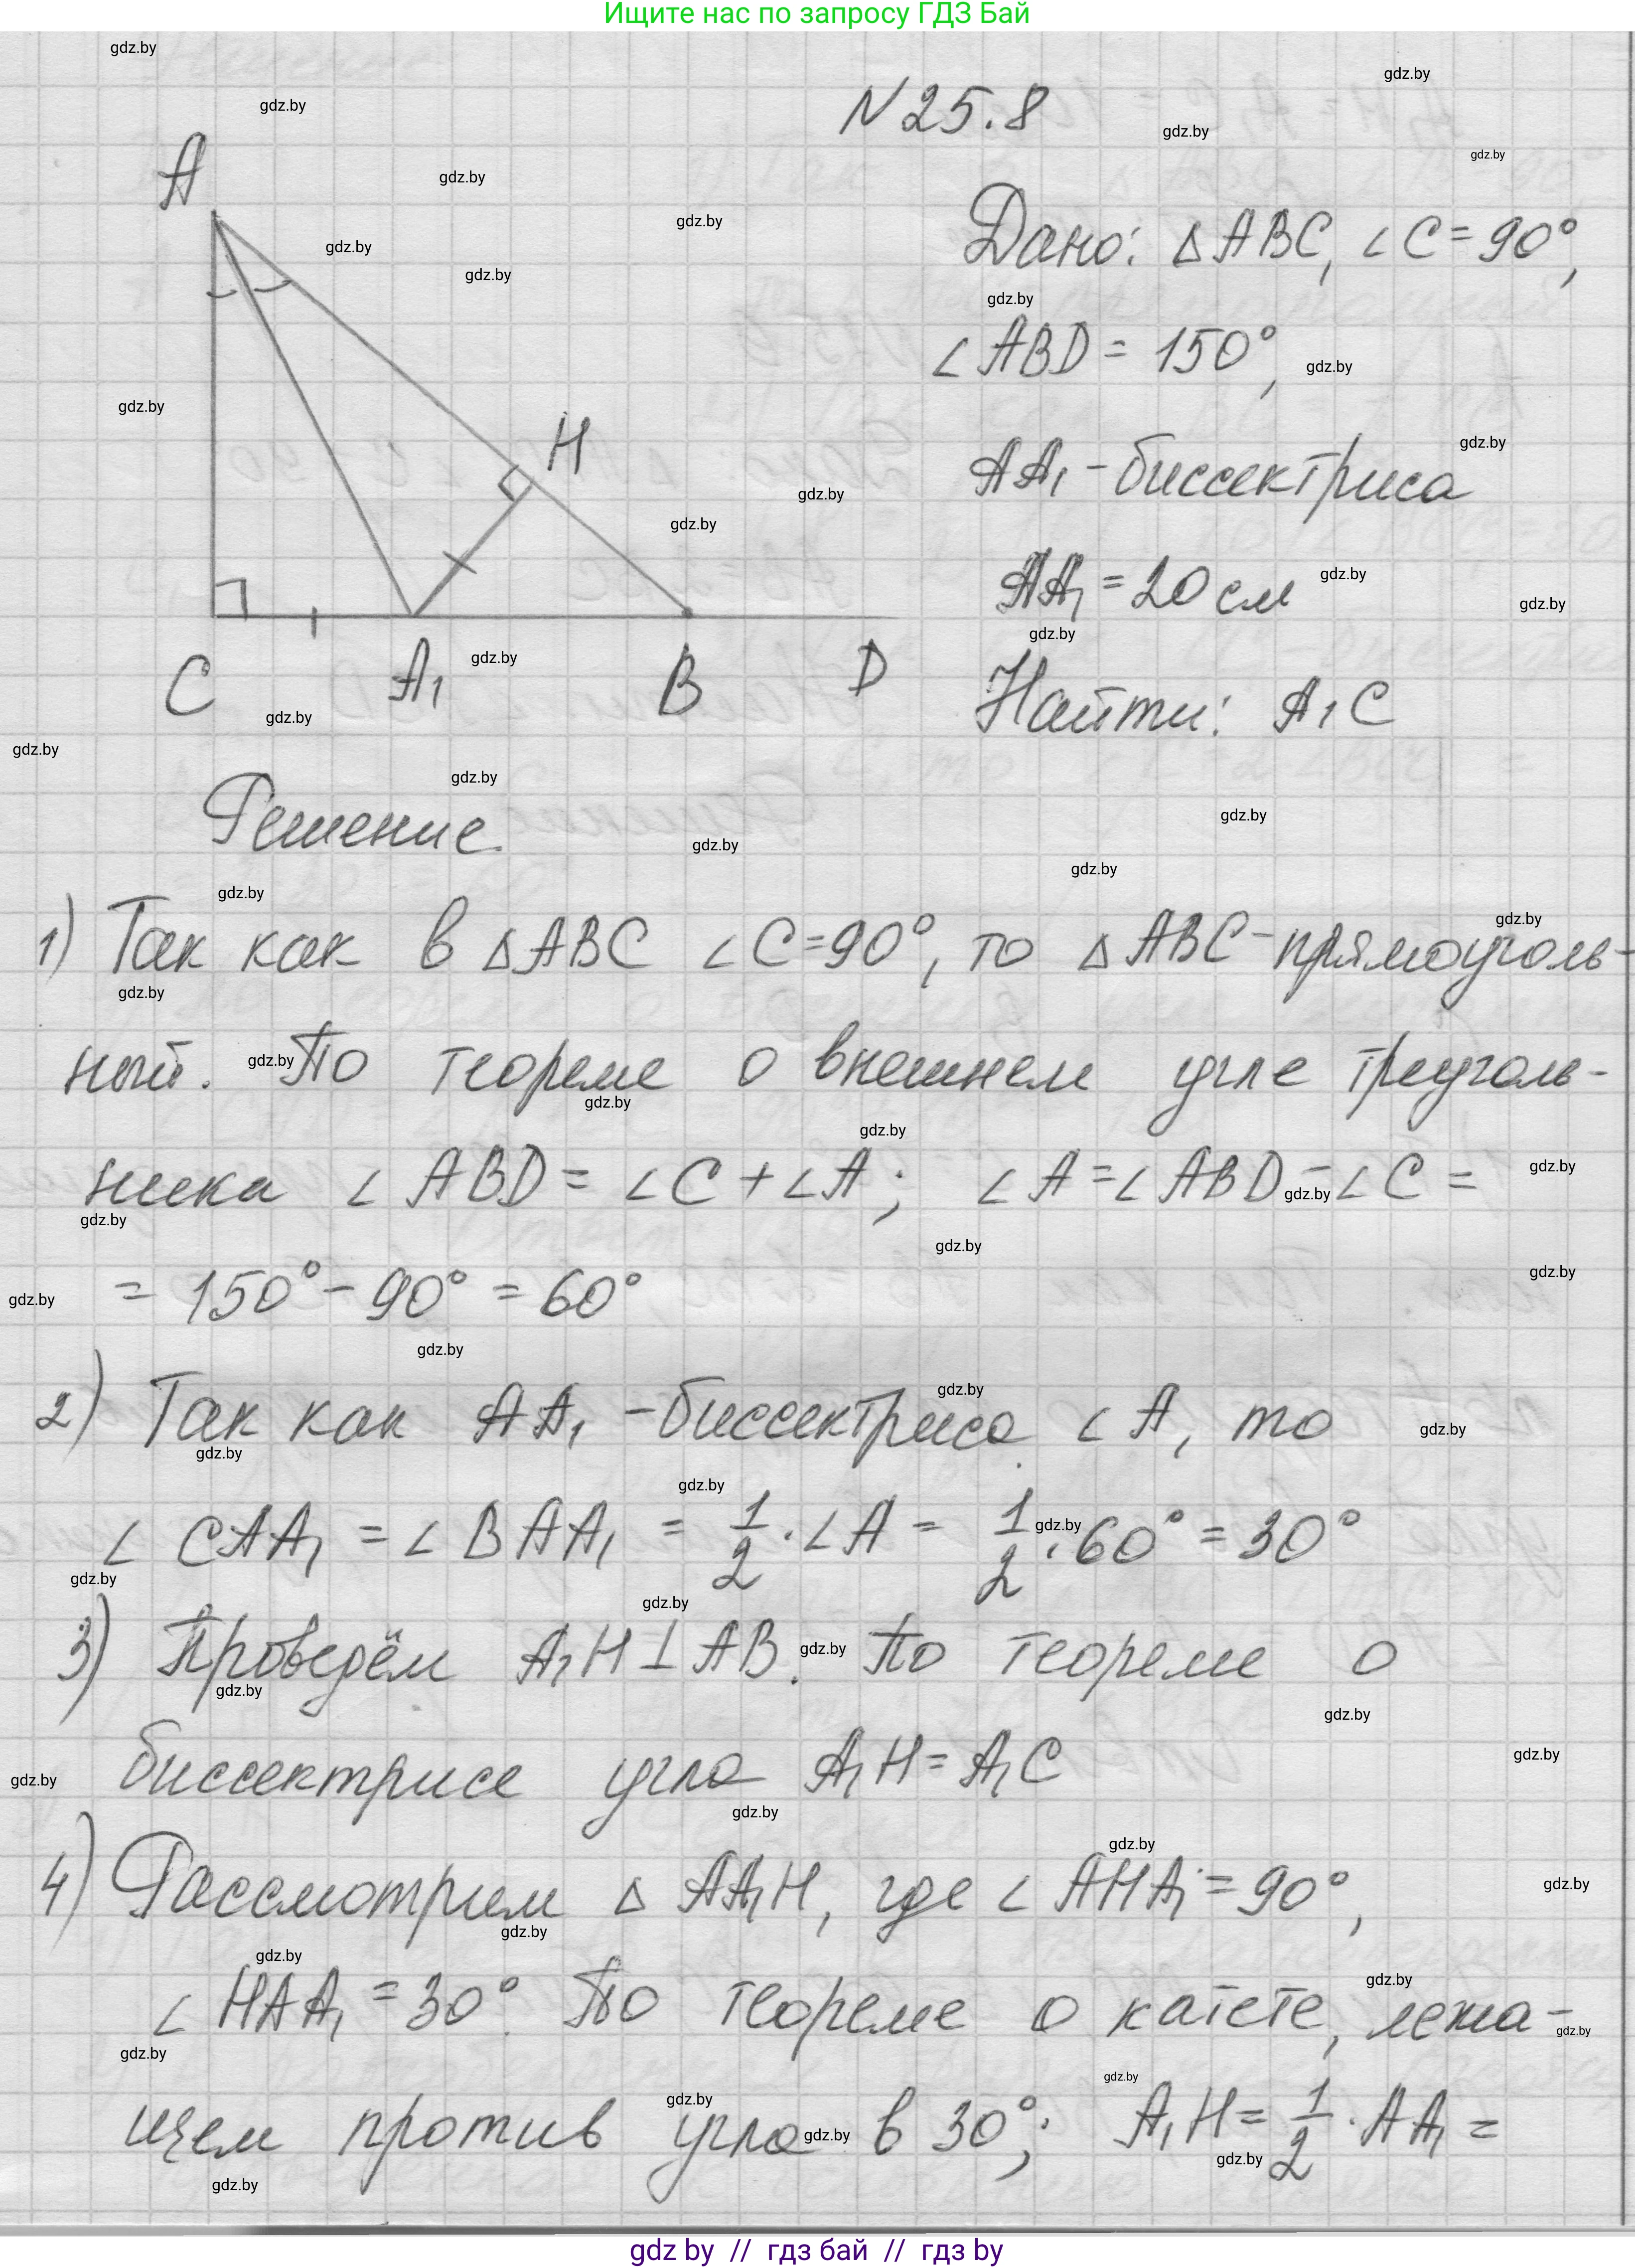 Ищите нас по запросу ГДЗ Бай
N 25.8
Дано: △ABC, ∠C=90°,
∠ABD = 150°,
AA₁ - биссектриса
AA₁ = 20 см
Найти: A₁C
A
H
C
A₁
B
D
Решение.
1) Так как в △ABC ∠C=90°, то △ABC - прямоуголь-
ный. По теореме о внешнем угле треуголь-
ника ∠ABD = ∠C + ∠A; ∠A = ∠ABD - ∠C =
= 150° - 90° = 60°
2) Так как AA₁ - биссектриса ∠A, то
∠CAA₁ = ∠BAA₁ = 1/2 · ∠A = 1/2 · 60° = 30°
3) Проведём A₁H ⊥ AB. По теореме о
биссектрисе угла A₁H = A₁C
4) Рассмотрим △AA₁H, где ∠AHA₁ = 90°,
∠HAA₁ = 30°. По теореме о катете, лежа-
щем против угла в 30°; A₁H = 1/2 · AA₁ =
gdz by // гдз бай // гдз by